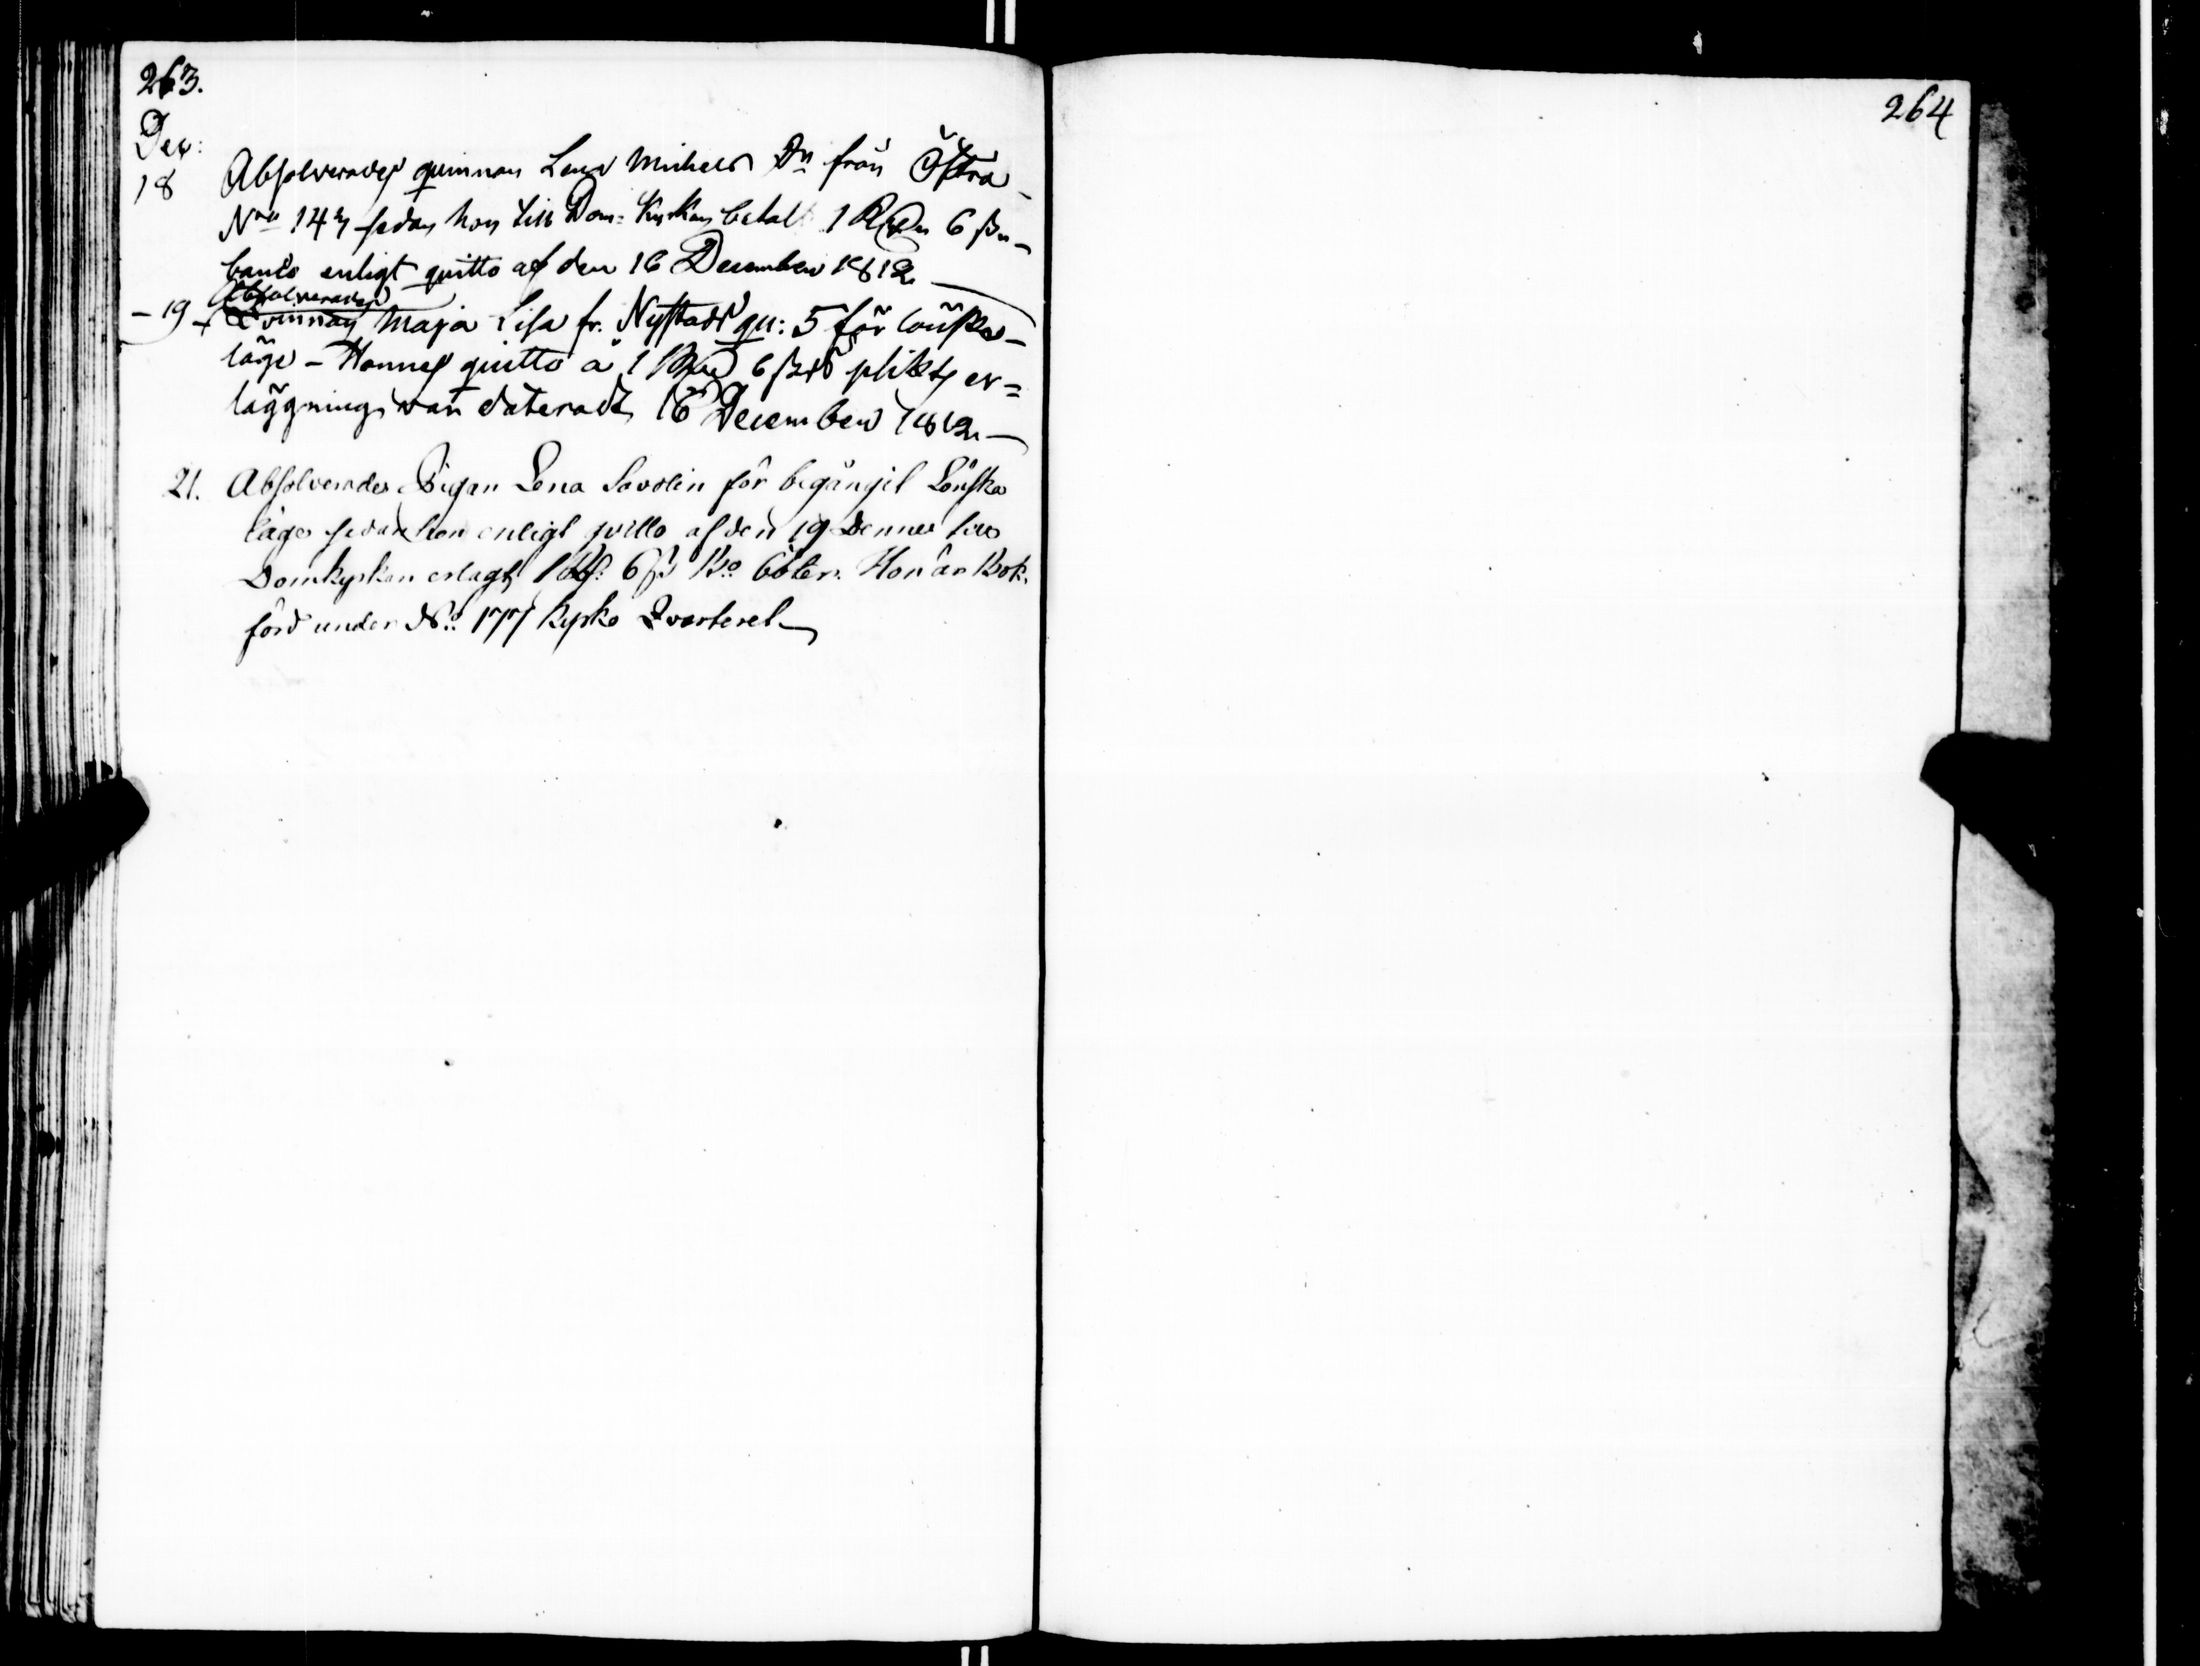 263.
Dec:
18 Absolverades quinnan Lena Michels Dr från Östra
No 147 sedan hon till Dom-Kyrkan betalt 1 Rdr 6 sk
banco enligt quitto af den 16 December 1812
Absolverades
- 19 - Qvinnan Maja Lisa fr. Nystads qu: 5 för lönska-
läge - Hennes quitto å 1 Rdr 6 sk plikts er=
läggning war dateradt 16 December 1812
21. Absolverades Pigan Lena Savolin för begångit Lönska
läge sedan hon enligt qvitto af den 19 Dennes till
Domkyrkan erlagt 1 Rd: 6 s Bo böter. Hon är Bok-
förd under No: 177 Kyrko Qvarteret
264